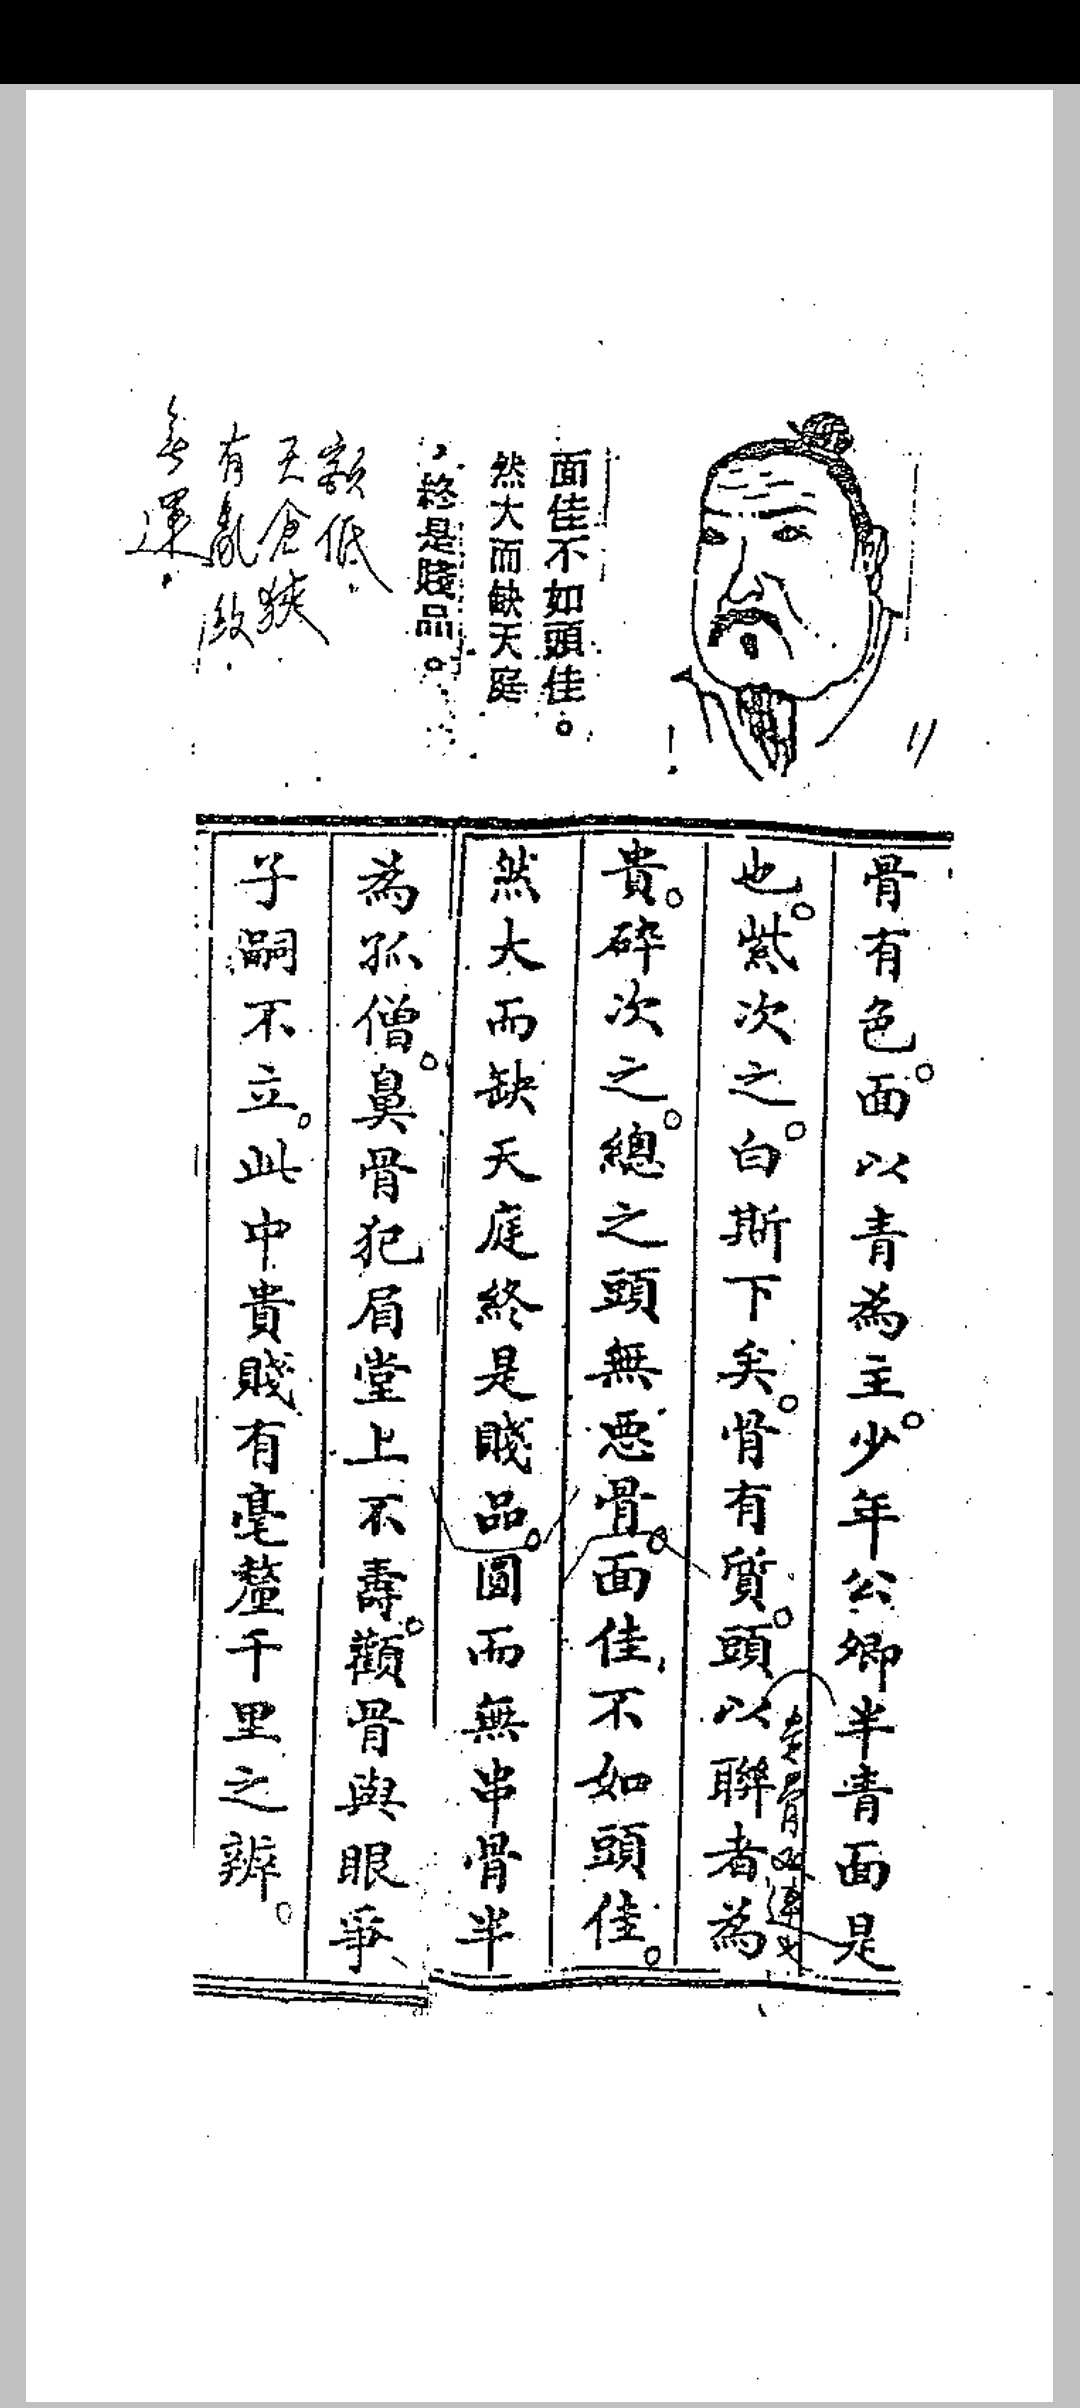 面佳不如頭佳。
然大而缺天庭
，終是賤品。
額低.
天倉狹.
有亂紋.
運.
骨有色。面以青為主。少年公卿半青面是
也。紫次之。白斯下矣。骨有質。頭以聯者為
貴。碎次之。總之頭無惡骨。面佳不如頭佳。
然大而缺天庭終是賤品。圓而無串骨半
為孤僧。鼻骨犯眉堂上不壽。顴骨與眼爭
子嗣不立。此中貴賤有毫釐千里之辨。